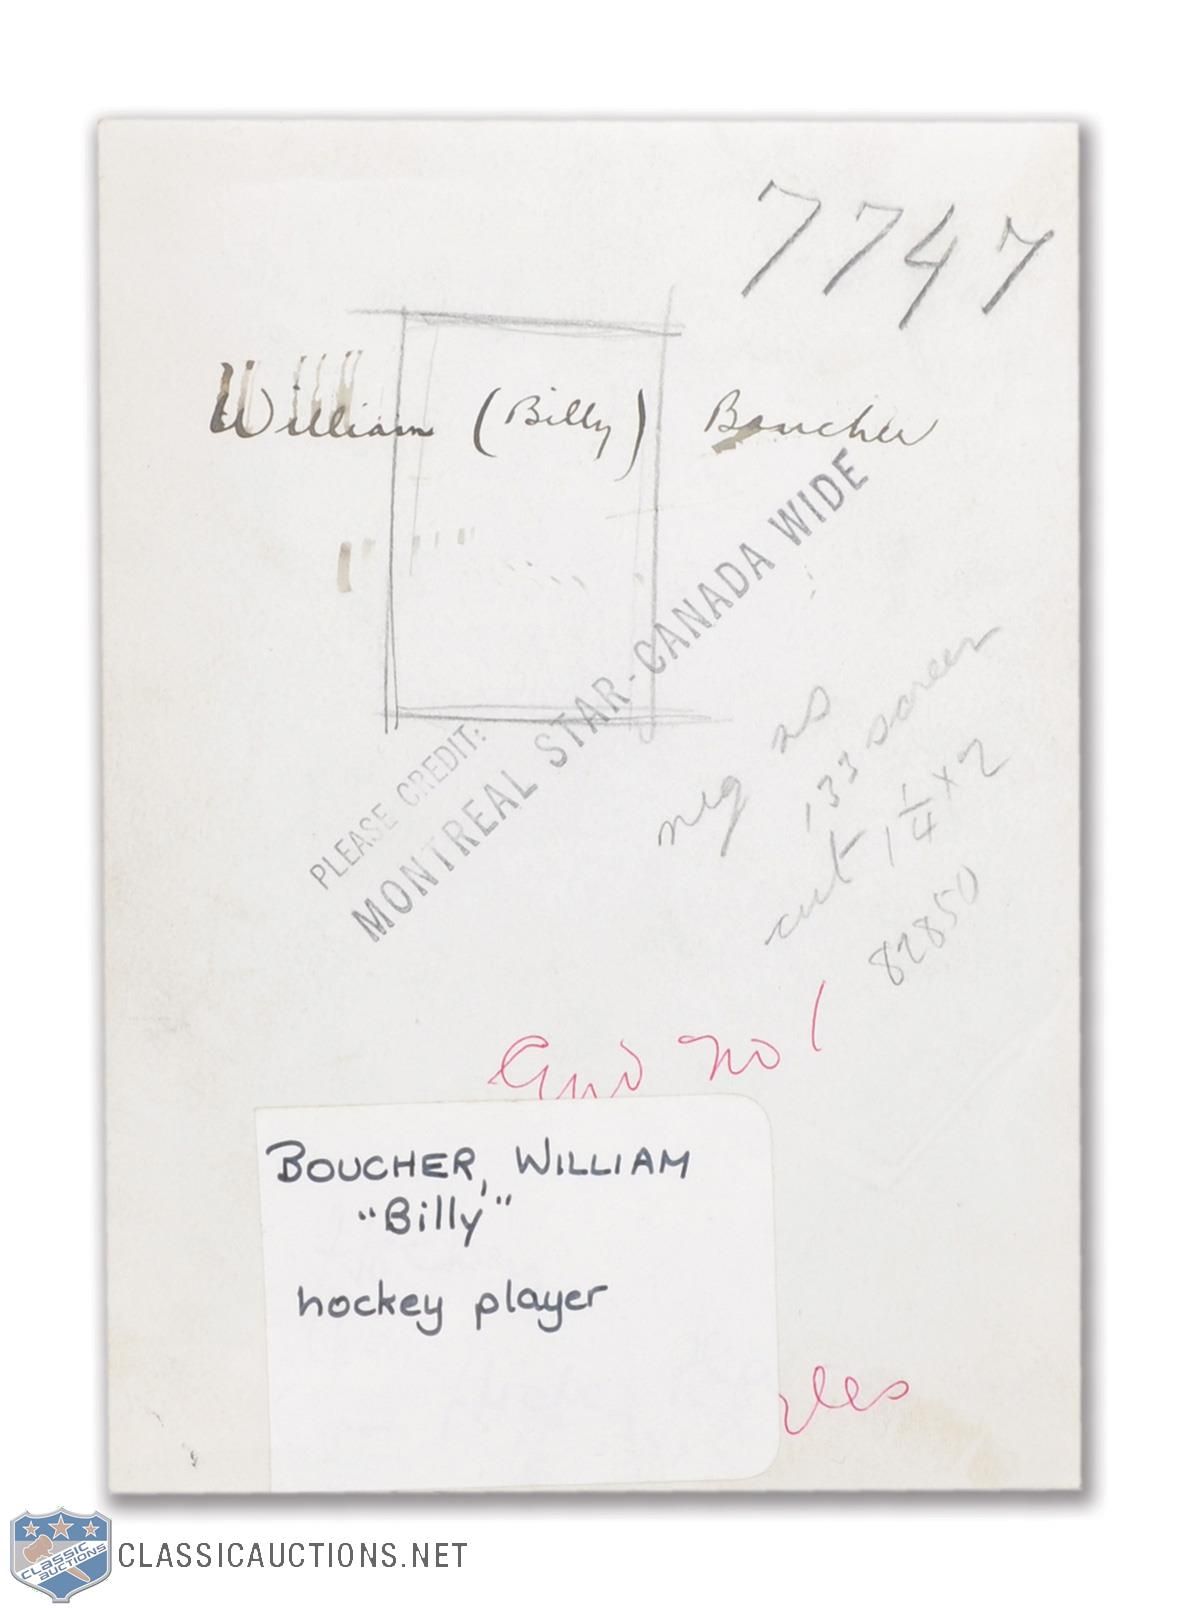 7747
William (Billy) Boucher
PLEASE CREDIT:
MONTREAL STAR-CANADA WIDE
neg as
133 screen
cut 1 1/4 x 2
82850
no 1
BOUCHER, WILLIAM
"Billy"
hockey player
CLASSIC
AUCTIONS
CLASSICAUCTIONS.NET